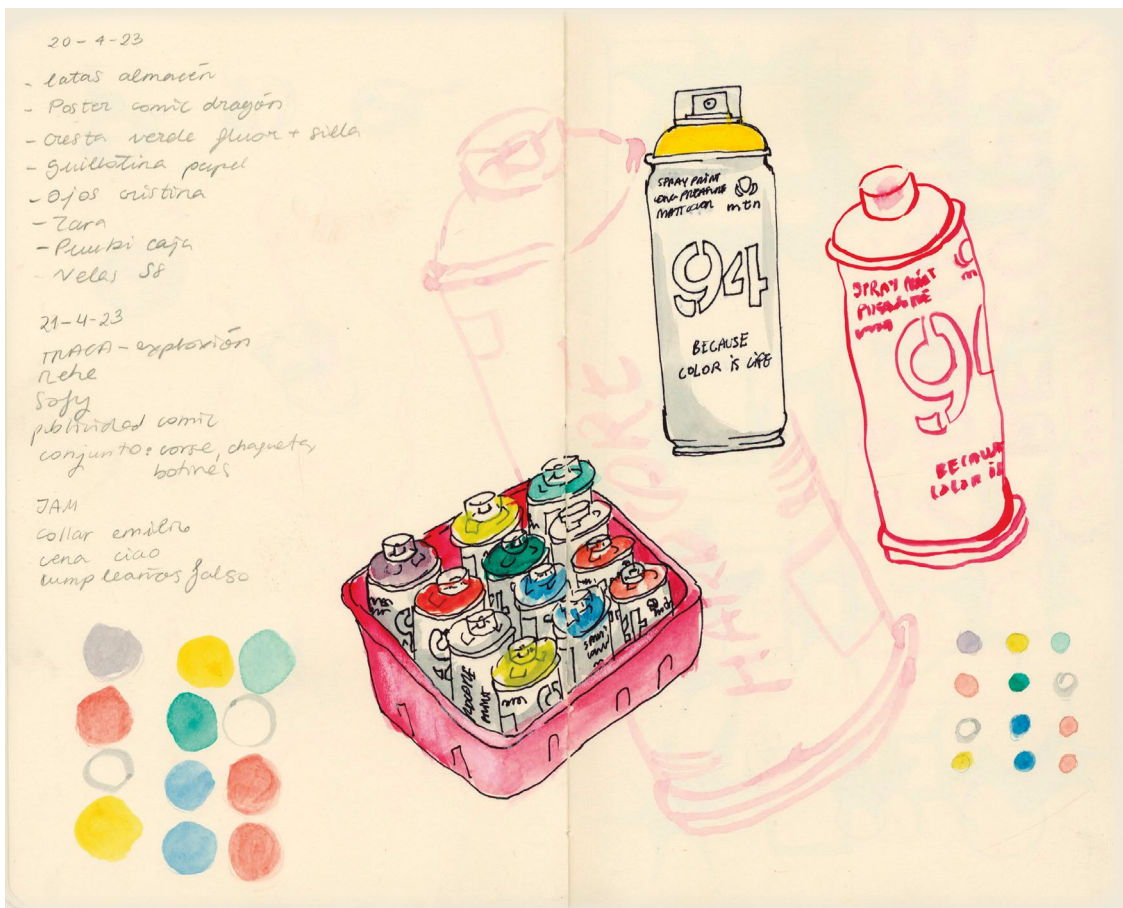 20-4-23
- latas almacén
- Poster comic dragón
- cresta verde fluor + silla
- Guillotina papel
- Ojos cristina
- Zara
- caja
- Velas S8
21-4-23
TRACA - explosión
Rehe
Sofy
publicidad comic
conjunto: corse, chaqueta,
botines
JAM
collar emilio
cena ciao
cumpleaños falso
SPRAY PAINT
LONG PRESSURE
MATT COLOR
mtn
94
BECAUSE
COLOR IS LIFE
SPRAY PAINT
m
9
BECAUSE
COLOR IS
HARDCORE